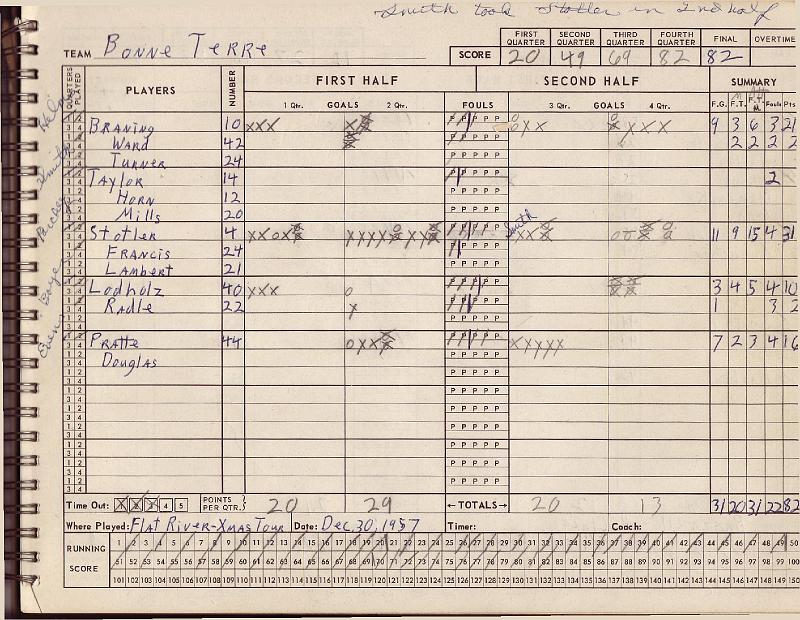 Smith took Stotler in 2nd half
FIRST QUARTER SECOND QUARTER THIRD QUARTER FOURTH QUARTER FINAL OVERTIME
TEAM Bonne Terre SCORE 20 49 69 82 82
QUARTERS PLAYED PLAYERS NUMBER FIRST HALF SECOND HALF SUMMARY
1 Qtr. GOALS 2 Qtr. FOULS 3 Qtr. GOALS 4 Qtr. F.G. F.T. F.T. Fouls Pts
Braning 10 9 3 6 3 21
Ward 42 2 2 2 2
Turner 24
Taylor 14 2
Horn 12
Mills 20
Smith
Stotler 4 11 9 15 4 31
Francis 24
Lambert 21
Lodholz 40 3 4 5 4 10
Radle 22 1 3 2
Pratte 44 7 2 3 4 16
Douglas
Time Out: 1 2 3 4 5 POINTS PER QTR. 20 29 ←TOTALS→ 20 13 31 20 31 22 82
Where Played: Flat River-Xmas Tour Date: Dec. 30, 1957 Timer: Coach:
RUNNING SCORE
1 2 3 4 5 6 7 8 9 10 11 12 13 14 15 16 17 18 19 20 21 22 23 24 25 26 27 28 29 30 31 32 33 34 35 36 37 38 39 40 41 42 43 44 45 46 47 48 49 50
51 52 53 54 55 56 57 58 59 60 61 62 63 64 65 66 67 68 69 70 71 72 73 74 75 76 77 78 79 80 81 82 83 84 85 86 87 88 89 90 91 92 93 94 95 96 97 98 99 100
101 102 103 104 105 106 107 108 109 110 111 112 113 114 115 116 117 118 119 120 121 122 123 124 125 126 127 128 129 130 131 132 133 134 135 136 137 138 139 140 141 142 143 144 145 146 147 148 149 150